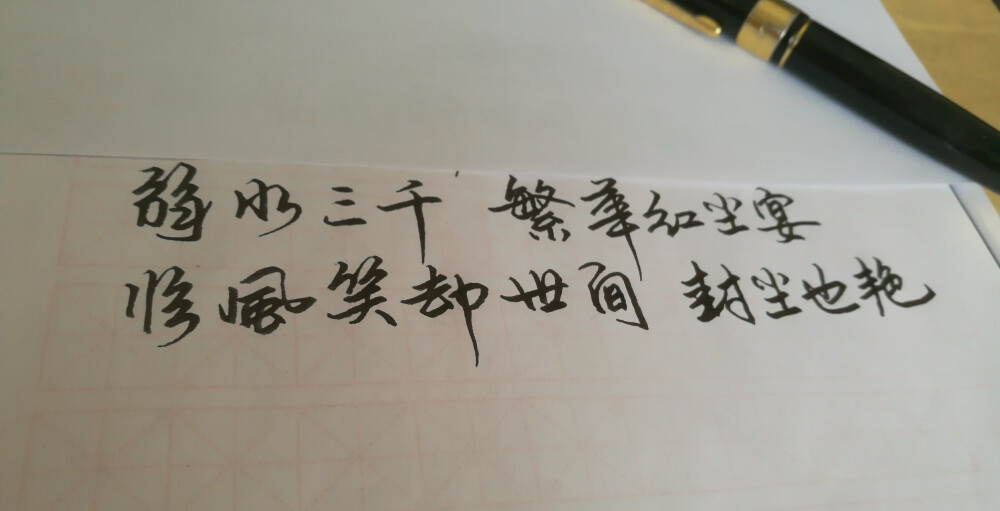 弱水三千 繁華红尘宴
临風笑却世间 封尘也艳